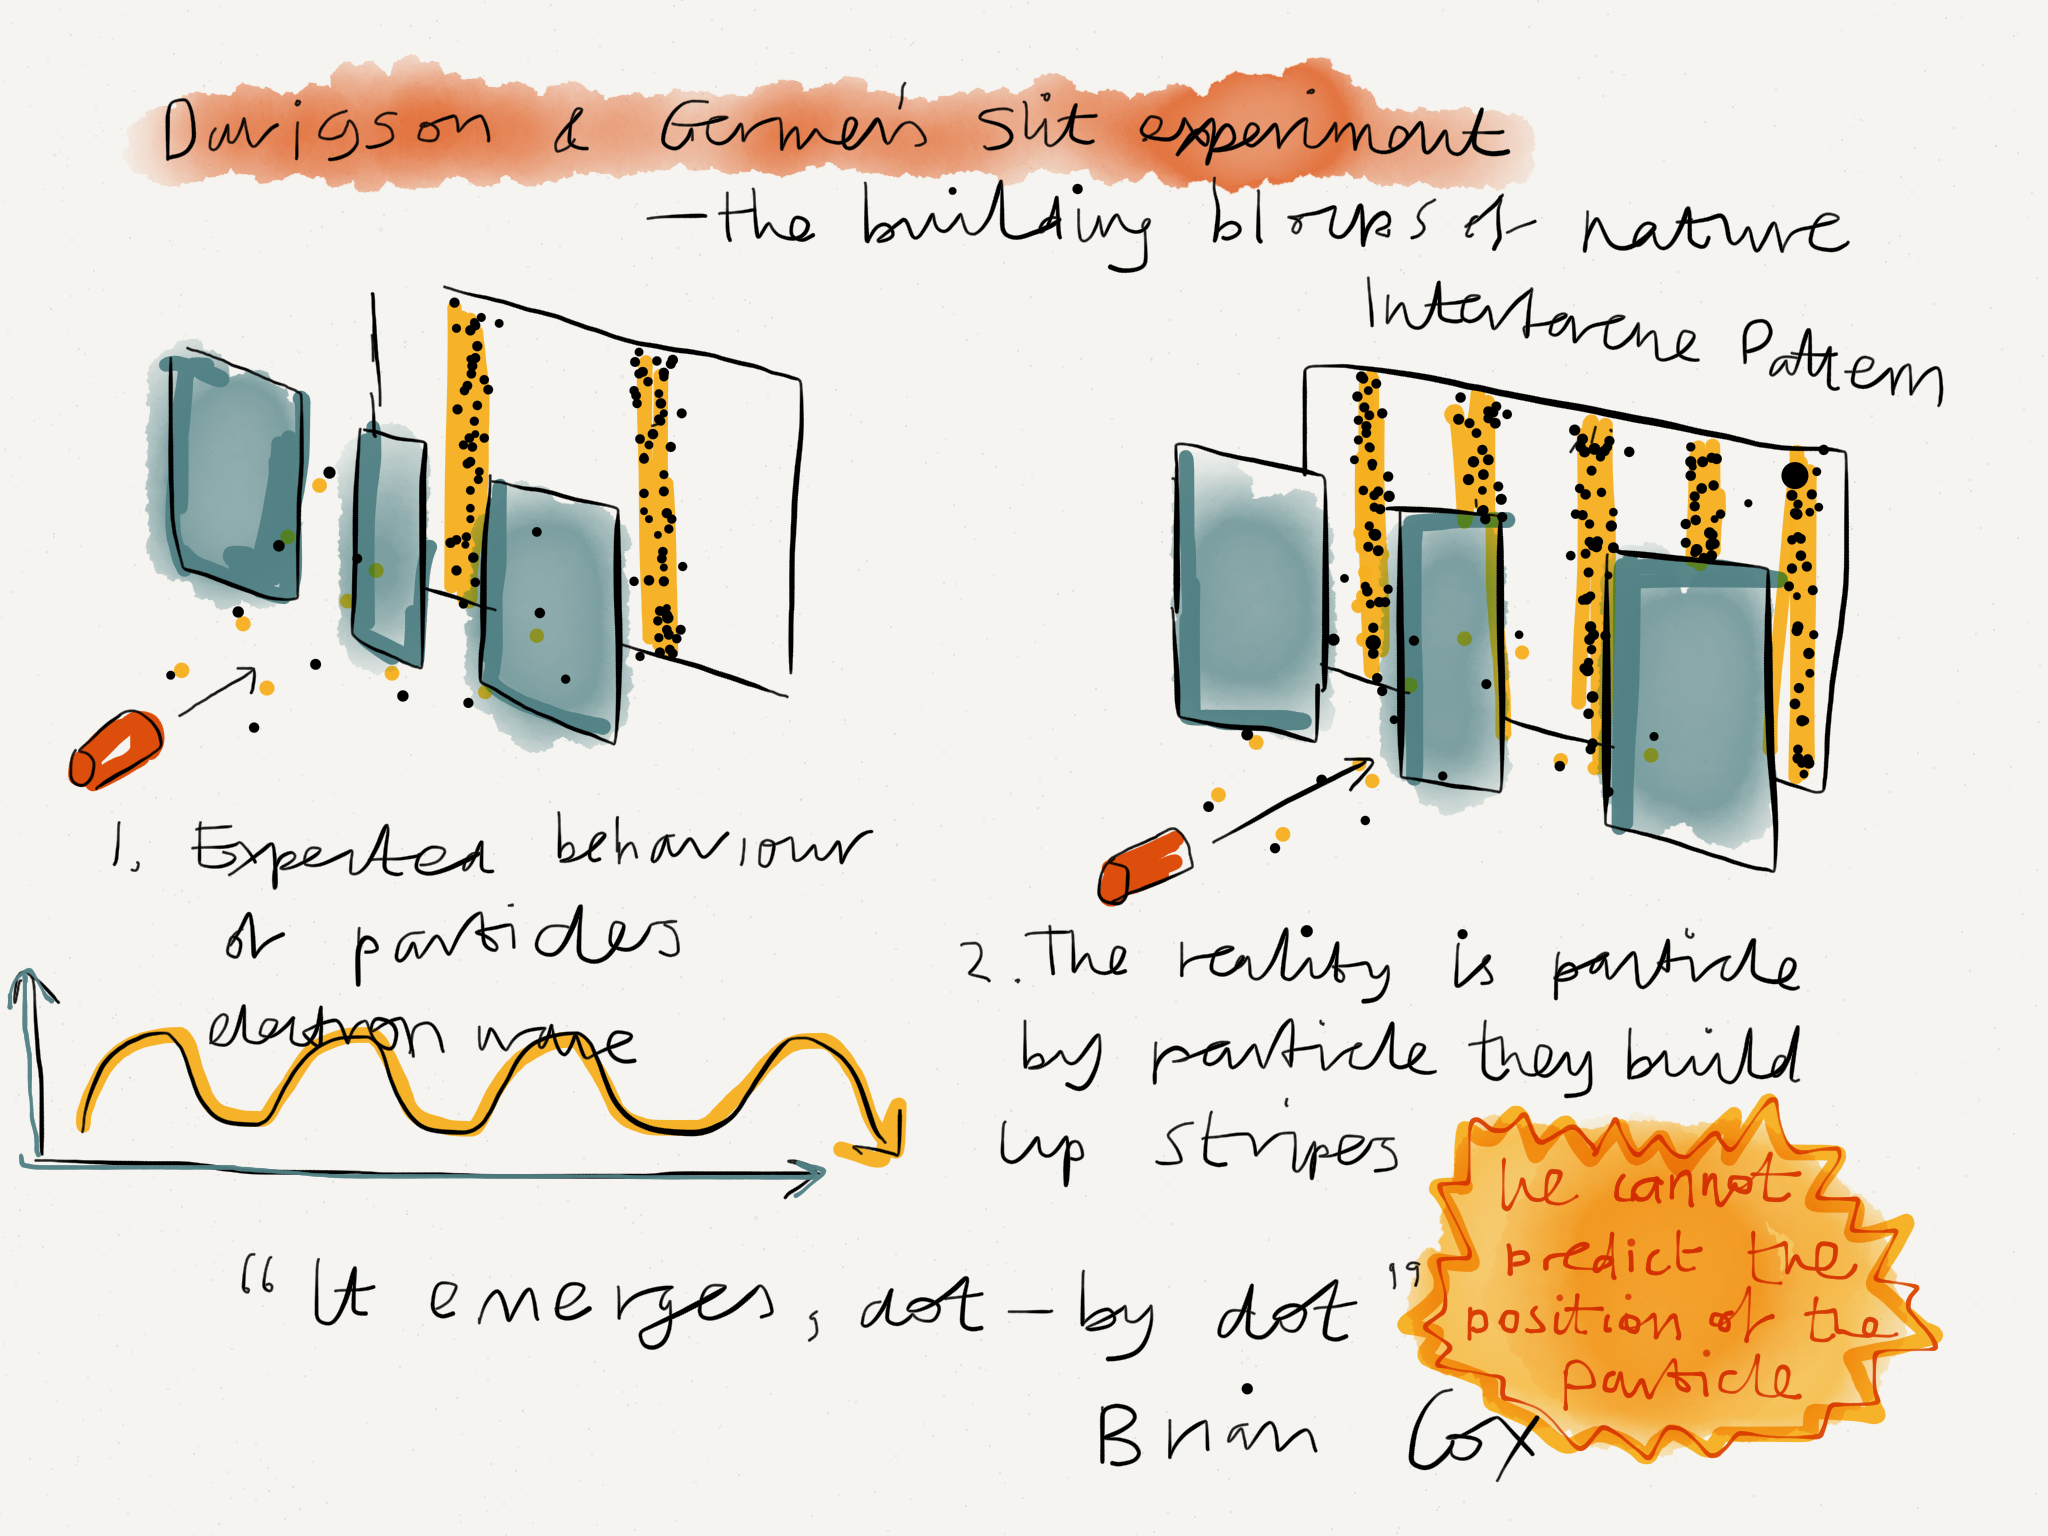 Davigson & Germer's Slit experiment
- the building blocks of nature
Interference Pattern
1. Expected behaviour
of particles
electron wave
2. The reality is particle
by particle they build
up stripes
We cannot
predict the
position of the
particle
"It emerges, dot-by dot"
Brian Cox